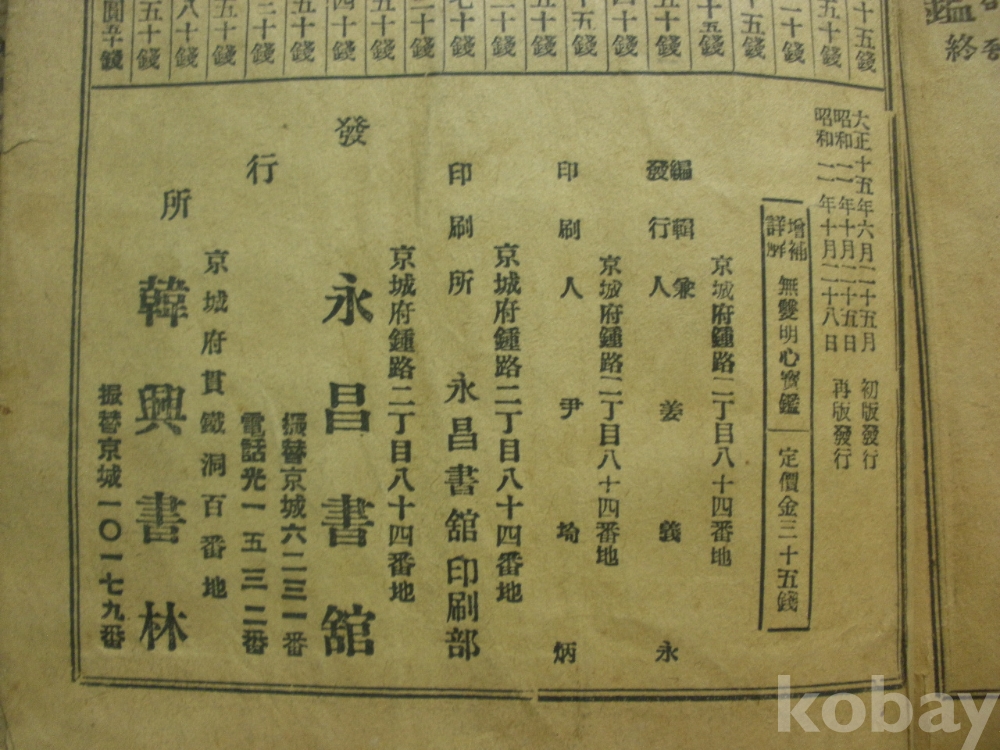 鑑終
十五錢
五十錢
十錢
十五錢
十五錢
十錢
四十錢
十五錢
四十錢
二十錢
七十錢
二十錢
五十錢
四十錢
五十錢
二十錢
五十錢
八十錢
五十錢
圓五十錢
大正十五年六月二十五月 初版發行
昭和二年十月二十五日
昭和二年十月二十八日 再版發行
增補詳解 無雙明心寶鑑 定價金三十五錢
京城府鍾路二丁目八十四番地
編輯兼發行人 姜義永
京城府鍾路二丁目八十四番地
印刷人 尹埼炳
京城府鍾路二丁目八十四番地
印刷所 永昌書舘印刷部
京城府鍾路二丁目八十四番地
發行所 永昌書舘
振替京城六二三一番
電話光一五三二番
京城府貫鐵洞百番地
韓興書林
振替京城一〇一七九番
kobay